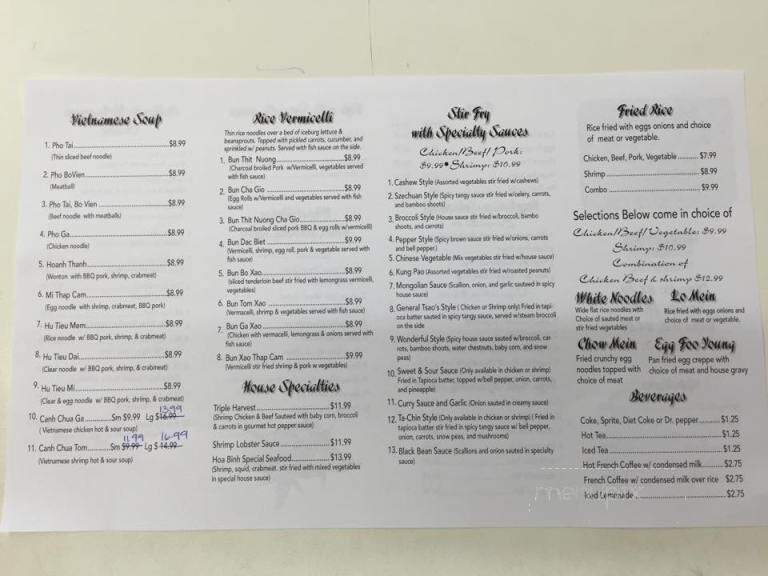 Vietnamese Soup
1. Pho Tai $8.99
(Thin sliced beef noodle)
2. Pho BoVien $8.99
(Meatball)
3. Pho Tai, Bo Vien $8.99
(Beef noodle with meatballs)
4. Pho Ga $8.99
(Chicken noodle)
5. Hoanh Thanh $8.99
(Wonton with BBQ pork, shrimp, crabmeat)
6. Mi Thap Cam $8.99
(Egg noodle with shrimp, crabmeat, BBQ pork)
7. Hu Tieu Mem $8.99
(Rice noodle w/ BBQ pork, shrimp, & crabmeat)
8. Hu Tieu Dai $8.99
(Clear noodle w/ BBQ pork, shrimp, & crabmeat)
9. Hu Tieu Mi $8.99
(Clear & egg noodle w/ BBQ pork, shrimp, & crabmeat)
13.99
10. Canh Chua Ga Sm $9.99 Lg
(Vietnamese chicken hot & sour soup)
11.99 16.99
11. Canh Chua Tom Sm $9.99 Lg $14.99
(Vietnamese shrimp hot & sour soup)
Rice Vermicelli
Thin rice noodles over a bed of iceburg lettuce &
beansprouts. Topped with pickled carrots, cucumber, and
sprinkled w/ peanuts. Served with fish sauce on the side.
1. Bun Thit Nuong $8.99
(Charcoal broiled Pork w/Vermicelli, vegetables served
with fish sauce)
2. Bun Cha Gio $8.99
(Egg Rolls w/Vermicelli and vegetables served with fish
sauce)
3. Bun Thit Nuong Cha Gio $8.99
(Charcoal broiled sliced pork BBQ & egg rolls w/vermicelli)
4. Bun Dac Biet $9.99
(Vermicelli, shrimp, egg roll, pork & vegetable served with
fish sauce)
5. Bun Bo Xao $8.99
(Sliced tenderloin beef stir fried with lemongrass vermicelli,
vegetables)
6. Bun Tom Xao $8.99
(Vermacelli, shrimp & vegetables served with fish sauce)
7. Bun Ga Xao $8.99
(Chicken with vermacelli, lemongrass & onions served with
fish sauce)
8. Bun Xao Thap Cam $9.99
(Vermicelli stir fried shrimp & pork w vegetables)
House Specialties
Triple Harvest $11.99
(Shrimp Chicken & Beef Sauteed with baby corn, broccoli
& carrots in gourmet hot pepper sauce)
Shrimp Lobster Sauce $11.99
Hoa Binh Special Seafood $13.99
(Shrimp, squid, crabmeat. stir fried with mixed vegetables
in special house sauce)
Stir Fry
with Specialty Sauces
Chicken/Beef/Pork:
$9.99•Shrimp: $10.99
1. Cashew Style (Assorted vegetables stir fried w/cashews)
2. Szechuan Style (Spicy tangy sauce stir fried w/celery, carrots,
and bamboo shoots)
3. Broccoli Style (House sauce stir fried w/broccoli, bambo
shoots, and carrots)
4. Pepper Style (Spicy brown sauce stir fried w/onions, carrots
and bell pepper.)
5. Chinese Vegetable (Mix vegetables stir fried w/house sauce)
6. Kung Pao (Assorted vegetables stir fried w/roasted peanuts)
7. Mongolian Sauce (Scallion, onion, and garlic sauteed in spicy
house sauce)
8. General Tsao's Style ( Chicken or Shrimp only) Fried in tapi-
oca batter sauted in spicy tangy sauce, served w/steam broccoli
on the side
9. Wonderful Style (Spicy house sauce sauted w/broccoli, car
rots, bamboo shoots, water chestnuts, baby corn, and snow
peas)
10. Sweet & Sour Sauce (Only available in chicken or shrimp)
Fried in Tapioca batter, topped w/bell pepper, onion, carrots,
and pineapple)
11. Curry Sauce and Garlic (Onion sauted in creamy sauce)
12. Ta-Chin Style (Only available in chicken or shrimp) ( Fried in
tapioca batter stir fried in spicy tangy sauce w/ bell pepper,
onion, carrots, snow peas, and mushrooms)
13. Black Bean Sauce (Scallions and onion sauted in specialty
sauce)
Fried Rice
Rice fried with eggs onions and choice
of meat or vegetable.
Chicken, Beef, Pork, Vegetable $7.99
Shrimp $8.99
Combo $9.99
Selections Below come in choice of
Chicken/Beef/Vegetable: $9.99
Shrimp: $10.99
Combination of
Chicken Beef & shrimp $12.99
White Noodles
Wide flat rice noodles with
Choice of sauted meat or
stir fried vegetables
Lo Mein
Rice fried with eggs onions and
choice of meat or vegetable.
Chow Mein
Fried crunchy egg
noodles topped with
choice of meat
Egg Foo Young
Pan fried egg creppe with
choice of meat and house gravy
Beverages
Coke, Sprite, Diet Coke or Dr. pepper $1.25
Hot Tea $1.25
Iced Tea $1.25
Hot French Coffee w/ condensed milk $2.75
French Coffee w/ condensed milk over rice $2.75
Iced Lemonade $2.75